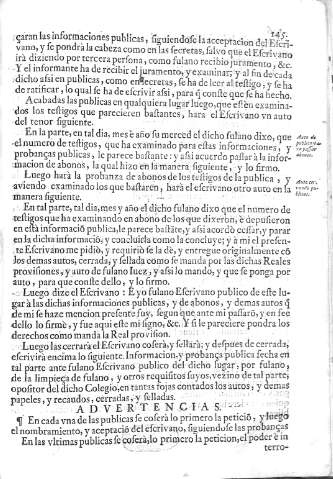 145.
çaran las informaciones publicas, siguiendose la acceptacion del Escri-
vano, y se pondrà la cabeza como en las secretas, salvo que el Escrivano
irà diziendo por tercera persona, como fulano recibio juramento, &c.
Y el informante ha de recibir el juramento, y examinar; y al fin de cada
dicho assi en publicas, como en secretas, se ha de leer al testigo, y se ha
de ratificar, lo qual se ha de escrivir assi, para q̃ conste que se ha hecho.
Acabadas las publicas en qualquiera lugar luego, que estèn examina-
dos los testigos que parecieren bastantes, harà el Escrivano vn auto
del tenor siguiente.
En la parte, en tal dia, mes è año su merced el dicho fulano dixo, que
el numero de testigos, que ha examinado para estas informaciones, y
probanças publicas, le parece bastante: y assi acuerdo passar à la infor-
macion de abonos, la qual hizo en la manera siguiente, y lo firmo.
Luego harà la probanza de abonos de los testigos de la publica, y
aviendo examinado los que bastaren, harà el escrivano otro auto en la
manera siguiente.
En tal parte, tal dia, mes y año el dicho fulano dixo que el numero de
testigos que ha examinado en abono de los que dixeron, è depusieron
en està informaciõ publica, le parece bastãte, y assi acordò cessar, y parar
en la dicha informaciõ, y concluirla como la concluye; y à mi el presen-
te Escrivano me pidiò, y requiriò se la dè, y entregue originalmente cõ
los demas autos, cerrada, y sellada como se manda por las dichas Reales
provisiones, y auto de fulano Iuez, y assi lo mando, y que se ponga por
auto, para que conste dello, y lo firmo.
Luego dize el Escrivano: E yo fulano Escrivano publico de este lu-
gar à las dichas informaciones publicas, y de abonos, y demas autos q̃
de mi se haze mencion presente fuy, segun que ante mi passarõ, y en fee
dello lo firmè, y fue aqui este mi signo, &c. Y si le pareciere pondra los
derechos como manda la Real provision.
Luego las cerrarà el Escrivano coserà, y sellarà; y despues de cerrada,
escrivirà encima lo siguiente. Informacion, y probança publica fecha en
tal parte ante fulano Escrivano publico del dicho lugar; por fulano,
de la limpieça de fulano, y otros requisitos suyos, vezino de tal parte,
opositor del dicho Colegio, en tantas fojas contados los autos, y demas
papeles, y recaudos, cerradas, y selladas.
ADVERTENCIAS.
¶ En cada vna de las publicas se coserà lo primero la peticiõ, y luego
el nombramiento, y aceptacio del escrivano, siguiendose las probanças
En las vltimas publicas se coserà, lo primero la peticion, el poder è in
terro-